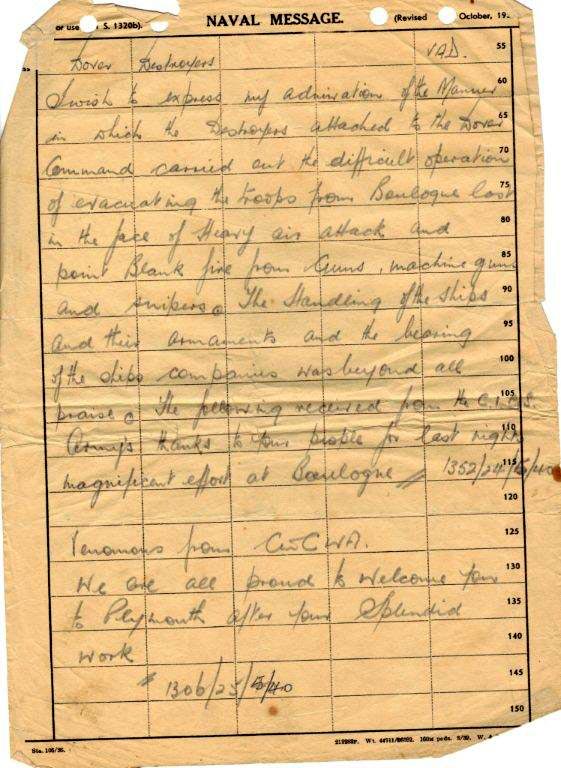 or use S. 1320b). NAVAL MESSAGE. (Revised October, 19
Dover Destroyers V.A.D. 55
I wish to express my admiration of the Manner 60
in which the Destroyers attached to the Dover 65
Command carried out the difficult operation 70
of evacuating the troops from Boulogne last 75
in the face of Heavy air attack and 80
point Blank fire from Guns, machine guns 85
and snipers. The Handling of the ships 90
and their armaments and the bearing 95
of the ships companies was beyond all 100
praise. The following received from the C.I.G.S. 105
Army's thanks to your people for last night 110
magnificent effort at Boulogne 1352/24/5/40 115
120
Venomous from CinCWA. 125
We are all proud to welcome you 130
to Plymouth after your Splendid 135
work 140
1306/25/5/40 145
150
Sta. 106/35. Wt. 5/39. W.